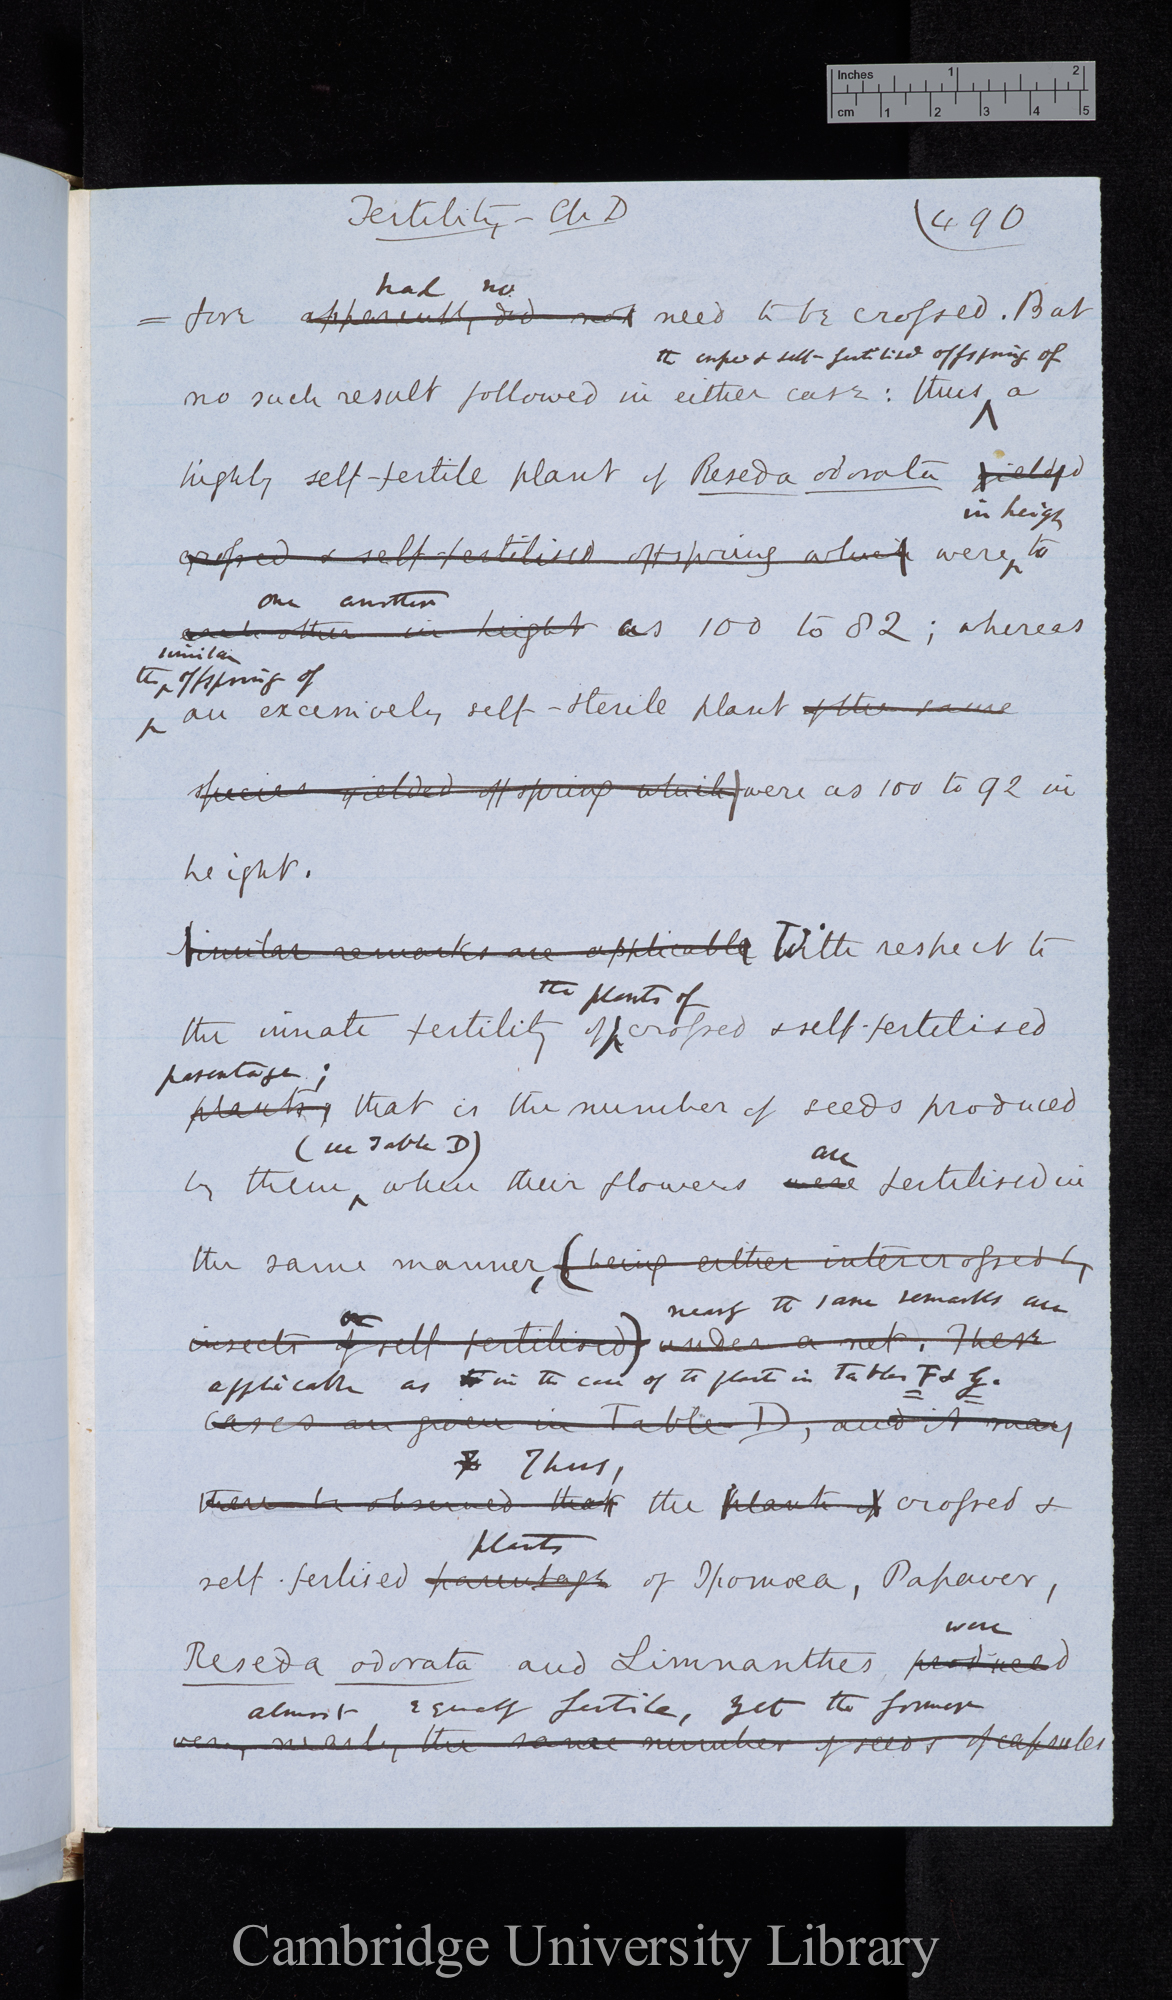 Inches 1 2
cm 1 2 3 4 5
Fertility – Ch D (490
had no
= fore apparently did not need to be crossed. But
the crossed & self-fertilised offspring of
no such result followed in either case: thus a
highly self-fertile plant of Reseda odorata yielded
in height
crossed & self-fertilised offspring which were to
one another
each other in height as 100 to 82; whereas
similar
the offspring of
an excessively self-sterile plant of the same
species yielded offspring which were as 100 to 92 in
height.
Similar remarks are applicable With respect to
the plants of
the innate fertility of crossed & self-fertilised
parentage;
plants, that is the number of seeds produced
(in Table D) are
by them, when their flowers were fertilised in
the same manner, (being either intercrossed by
nearly the same remarks are
or
insects or self fertilised) under a net. These
applicable as in the case of the plants in Tables F & G.
cases are given in Table D, and it may
Thus,
there be observed that the plants of crossed &
plants
self-fertlised parentage of Ipomœa, Papaver,
were
Reseda odorata and Limnanthes produced
almost equally fertile, yet the former
very nearly the same number of seeds of capsules
Cambridge University Library